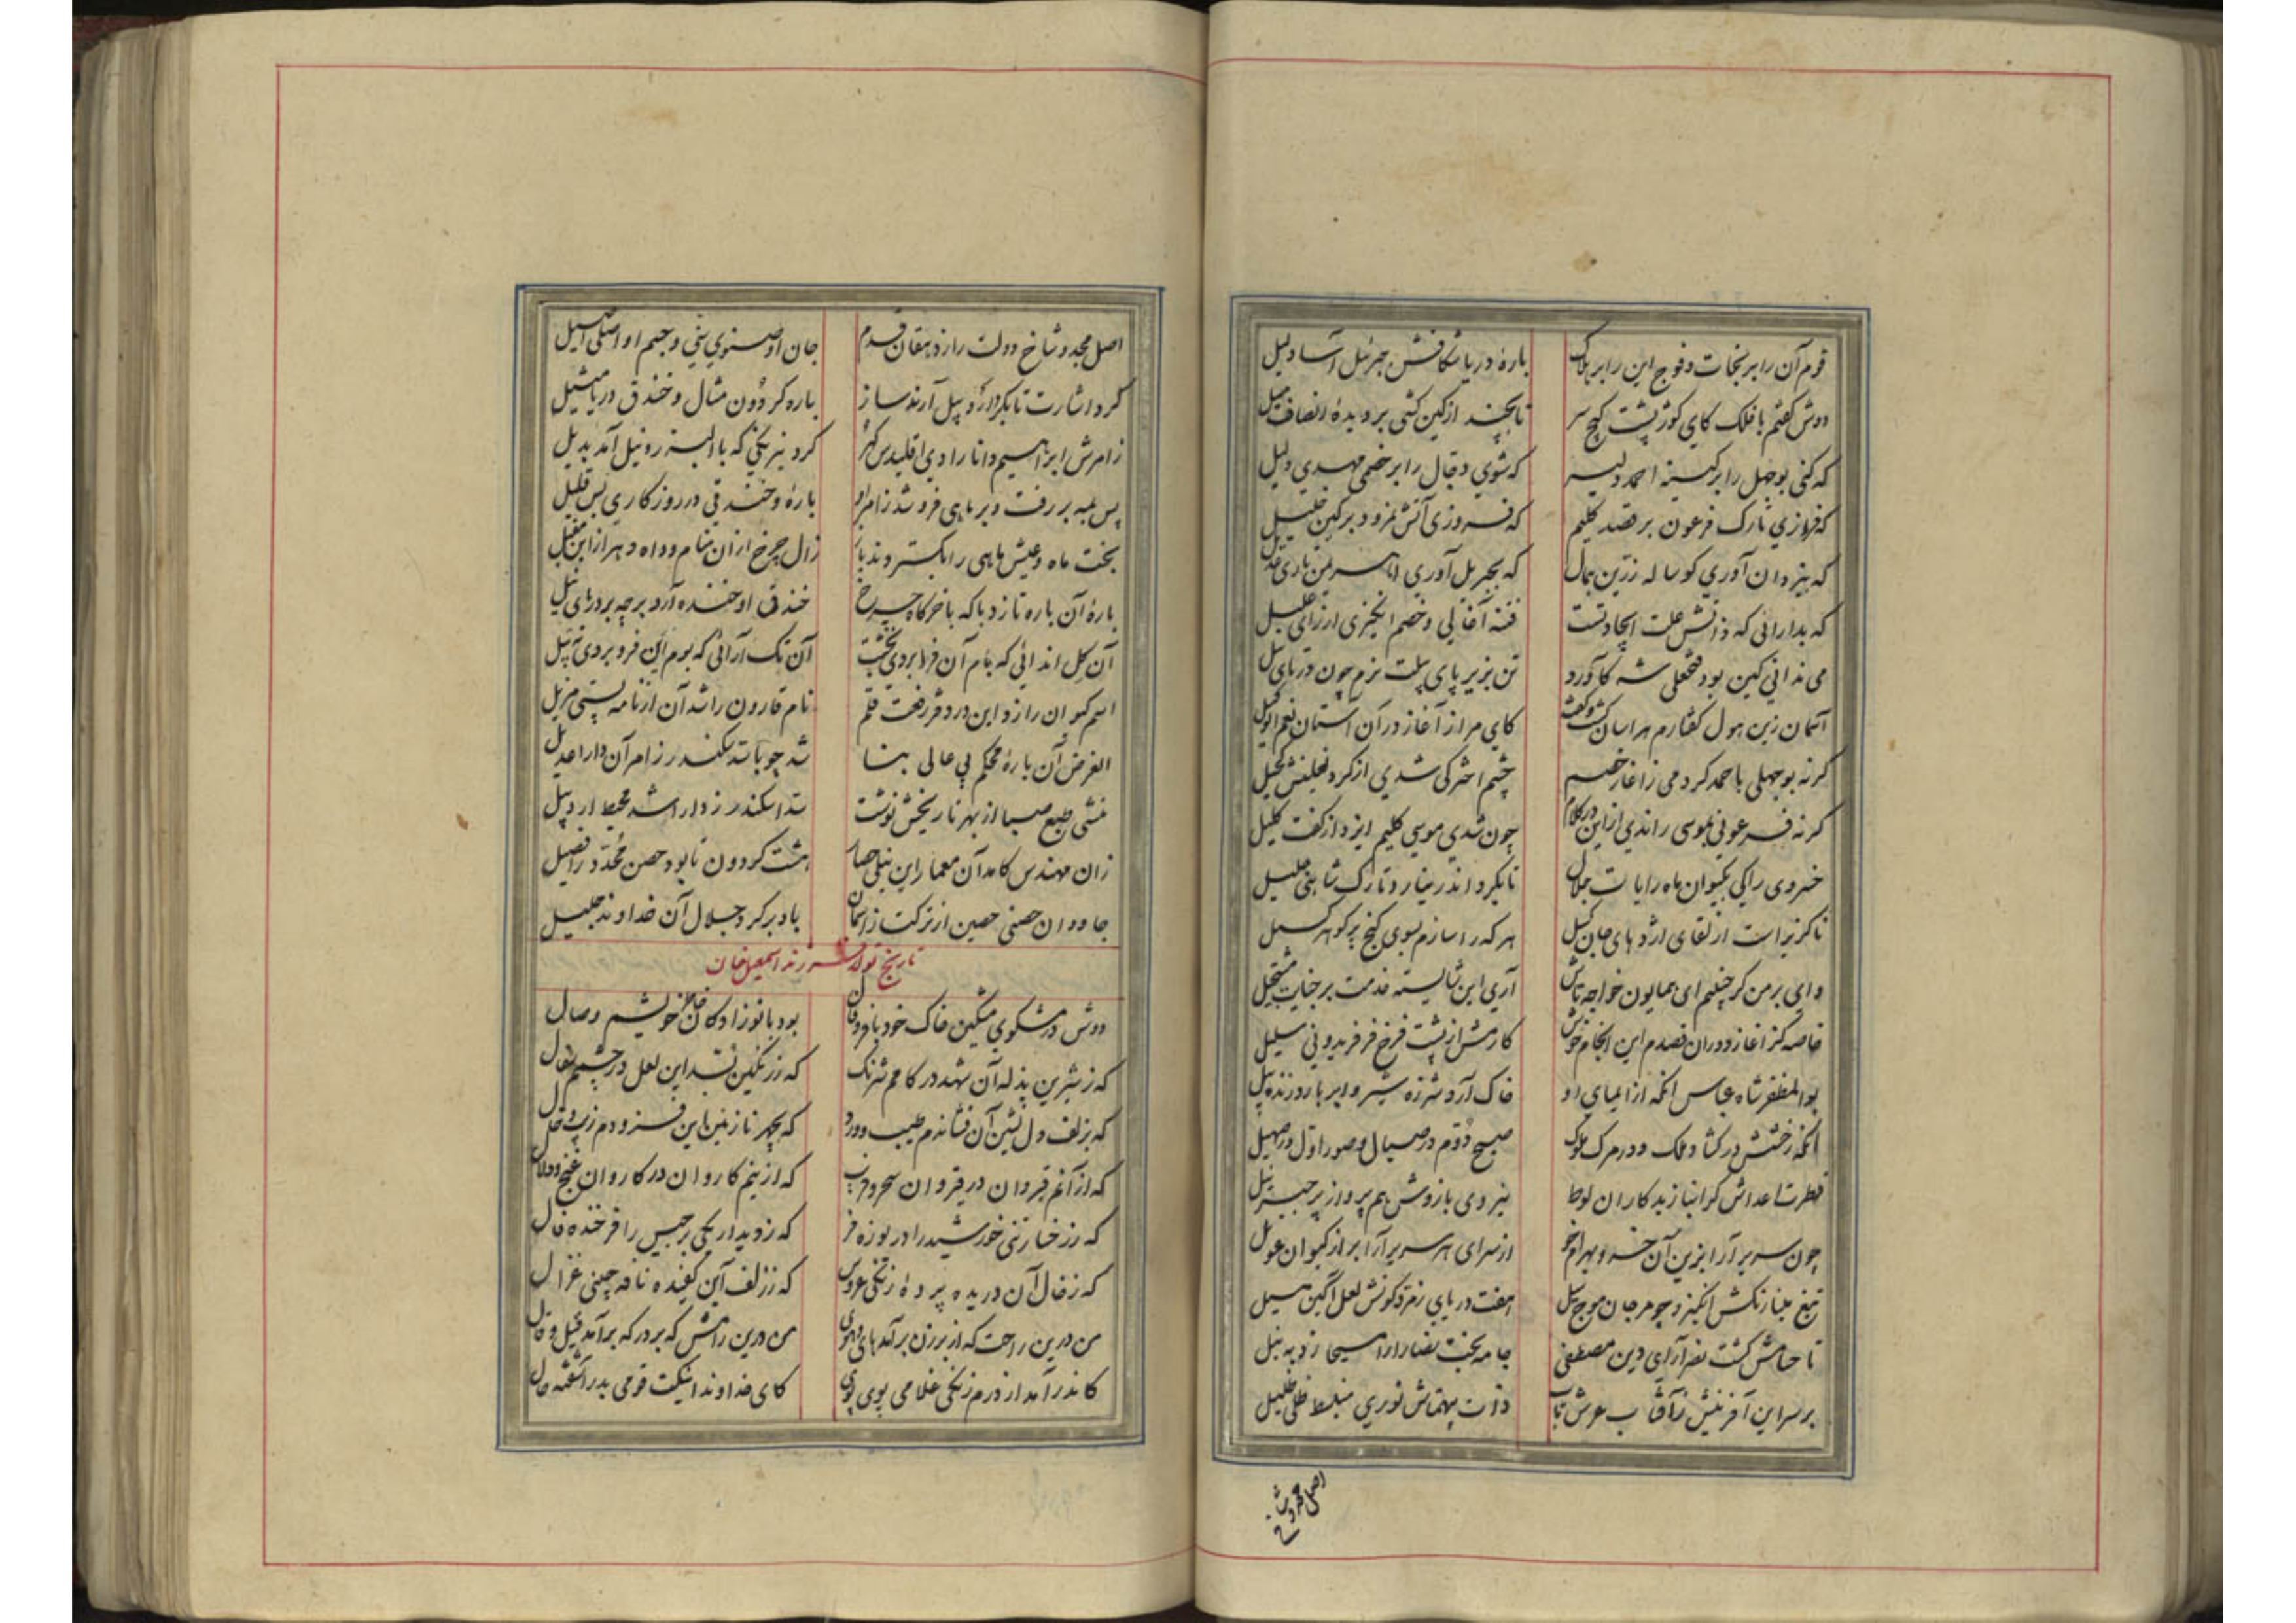 قوم آن را بر نجات و فوج این را بر هلاک بارهٔ دریا شکافش جبرئیل آسا دلیل
دوش گفتم با فلک کای کوژ پشت کج سر تا بچند از کین کشی بر دیدهٔ انصاف میل
که کنی بوجهل را بر کینهٔ احمد دلیر که شوی دجال را بر خصمی مهدی دلیل
که فرازی تارک فرعون بر قصد کلیم که فروزی آتش نمرود بر کین خلیل
که بیزدان آوری گوساله زرین همال که بجبریل آوری
که بدارائی که ذاتش علت ایجاد تست فتنه آغالی و خصم انگیزی از رای علیل
می ندانی کین بود فتحعلی شه کآورد تن بزیر پای پیلت نرم چون دریای نیل
آسمان زین هول گفتارم هراسان گشت و گفت کای مر از آغاز در آن آستان نعم الوکیل
گر نه بوجهلی با حمد کردمی ز آغاز خصم چشم اختر کی شدی از گرد نعلینش کحیل
گر نه فرعونی بموسی راندی از این در کلام چون شدی موسی کلیم ایزد از گفت کلیل
خسروی را کی بکیوان ماه رایات جلال تا نگردد اندر تارک شاهی جلیل
ناگزیر است از لقای اژدهای جان گسل هر که را سازم بسوی گنج پر گوهر سبیل
وای بر من گر چنینم ای همایون خواجه تاش آری این شایسته خدمت بر جنایت مستحیل
خاصه کز آغاز دوران قصدم این انجام خوش کارمش از پشت فرخ فر فریدونی سلیل
بوالمظفر شاه عباس آنکه از ایمای او خاک آرد شرزه شیر و ابر بارد زنده پیل
آنکه رخشش در گشاد ملک و در مرگ ملوک صبح دوم در صیال و صور اول در صهیل
فطرت اعداش گر انباز بدکاران لوط نیروی بازوش هم پرواز پر جبرئیل
چون سریر آرا بزین آن خسرو بهرام خو از سرای هر سریر آرا بر از کیوان عویل
تیغ مینا رنگش انگیزد چو مرجان موج سیل هفت دریای زمرد گونش لعل آگین مسیل
تا حسامش گشت نصر آرای دین مصطفی جامه بخت نصارا را مسیحا زد به نیل
بر سر این آفرینش ز آفتاب عرش تاب ذات بیهمتاش نوری منبسط ظلی ظلیل
اصل مجد و شا
اصل مجد و شاخ دولت را ز دهقان قدم جان او صنوی بهی و جسم او اصلی اصیل
کرد اشارت تا بگرد اردبیل آرند ساز باره گردون مثال و خندق دریا مثیل
ز امرش ابراهیم دانا رادی اقلیدس گهر کرد نیرنگی که با البرز و نیل آمد بدیل
پس بمه بر رفت و بر ماهی فرو شد ز امر او بارهٔ و خندقی در روزگاری بس قلیل
بخت ماه و عیش ماهی را بگستردند باز زال چرخ از آن منام و داه دهر از این مقیل
بارهٔ آن باره تازد با که با خرگاه چرخ خندق او خنده آرد بر چه بر دریای نیل
آن گل اندائی که بام آن فرا بردی بخشت آن تک آرائی که بوم این فرو بردی به بیل
اسم کیوان را زد این در دفتر رفعت قلم نام قارون راشد آن از نامه پستی مزیل
الغرض آن بارهٔ محکم پی عالی بنا شد چو با سد سکندر ز امر آن دارا عدیل
منشی طبع صبا از بهر تاریخش نوشت سد اسکندر ز دارا شد محیط اردبیل
زان مهندس کامد آن معمار این نیلی حصار هشت گردون تا بود حصن محدد را فصیل
جاودان حصنی حصین از ترکتاز آسمان باد بر گرد جلال آن خداوند جلیل
تاریخ تولد فرزند اسمعیل خان
دوش در مشکوی مشکین خاک خود با فر و فال بود با نوزادگان خویشم وصال
که ز شیرین بذله آن شهد در کامم شرنگ که ز رنگین بسد این لعل در چشمم سفال
که بزلف دلنشین آن فشاندم طیب و ورد که بچهر نازنین این فزودم زیب و خال
که از آنم قیروان در قیروان سحر و فریب که ازینم کاروان در کاروان غنج و دلال
که ز رخسار زنی خورشید را دریوزه فر که ز دیدار یکی برجیس را فرخنده فال
که ز خال آن دریده پردهٔ زنگی عروس که ز زلف این کفیده نافه چینی غزال
من درین راحت که از برزن برآمد های و هوی من درین رامش که بر درگه برآمد قیل و قال
کاندر آمد از درم زنگی غلامی پوی پوی کای خداوند اینکت قومی بدر آشفته حال